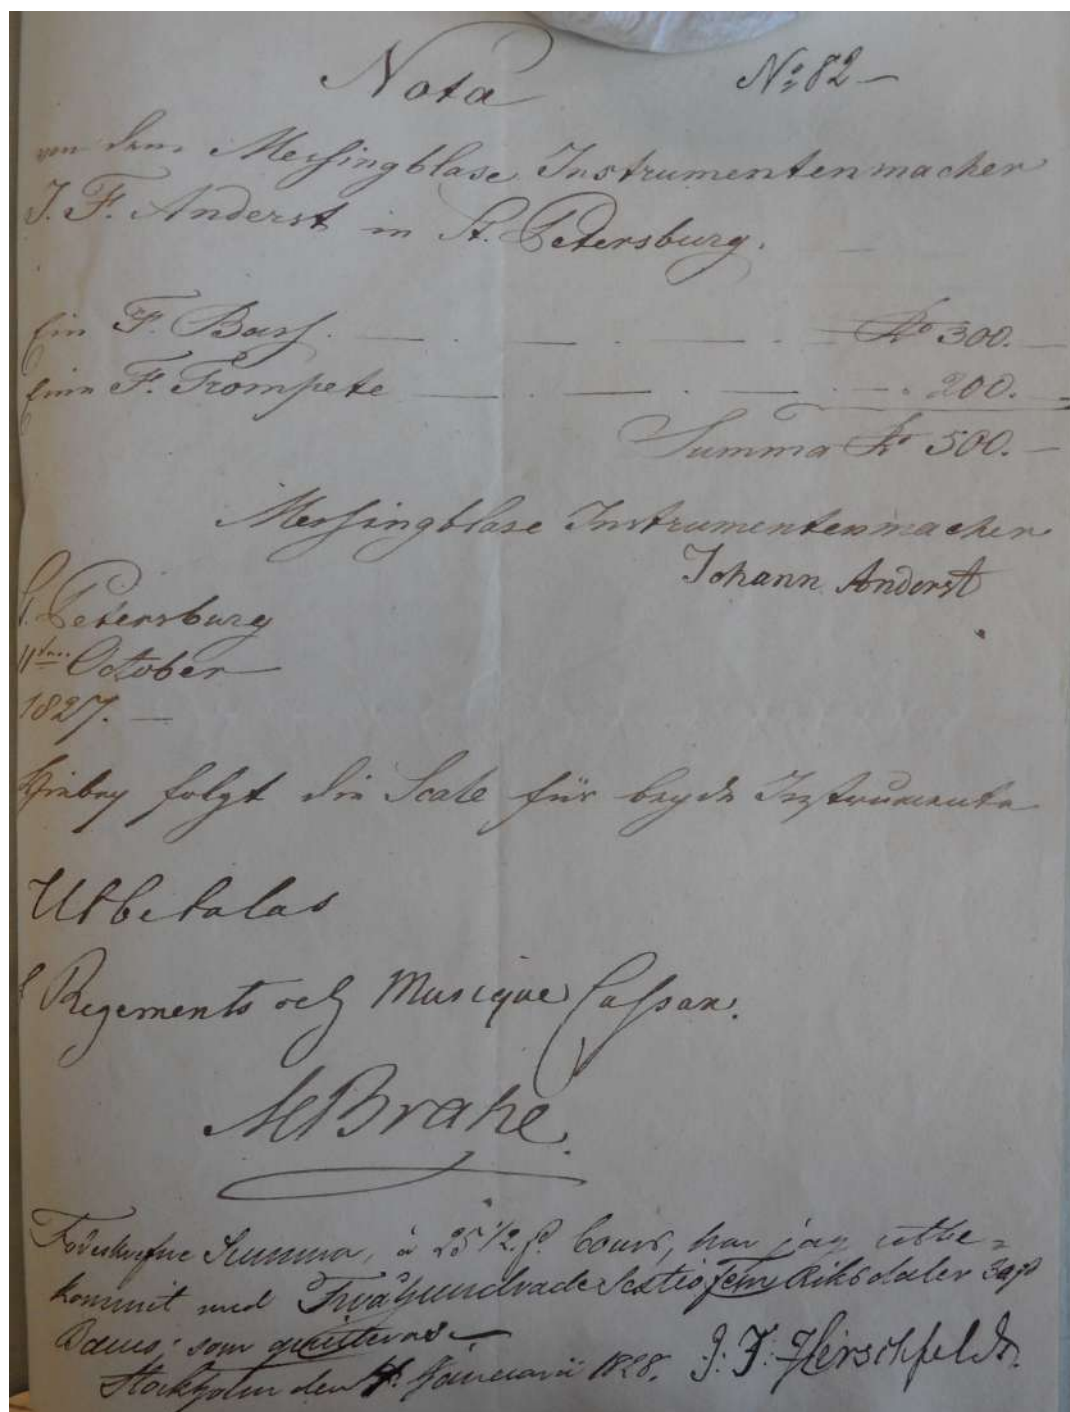 Nota
No: 82 —
von dem Messingblase Instrumentenmacher
J. F. Anderst in St. Petersburg.
Ein F. Bass. — . — . — . — Ro 300. —
Eine F. Trompete — . — . — . 200. —
Summa Ro 500. —
Messingblase Instrumentenmacher
Johann Anderst
St. Petersburg
11ten October
1827. —
Hiebey folgt die Scale für beyde Instrumente
Utbetalas
Regements och Musique Cassan.
M Brahe.
Föreskrefne Summa, à 25 1/2 ß. Cours, har jag utbe=
kommit med Tvåhundrade Sextiofem Riksdaler
Banco; som quitteras —
Stockholm den Januarii 1828.
J: F: Hirschfeldt.